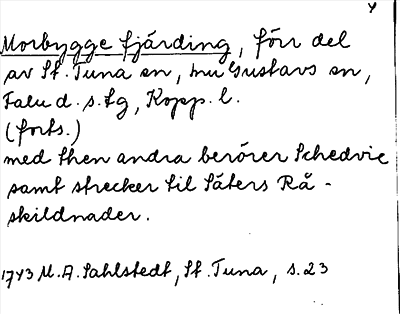 Y
Morbygge fjärding, förr del
av St. Tuna sn, nu Gustavs sn,
Falu d. s. tg, Kopp. l.
(forts.)
med then andra berörer Schedvic
samt strecker til Säters Rå -
skildnader.
1743 M. A. Sahlstedt, St. Tuna, s. 23